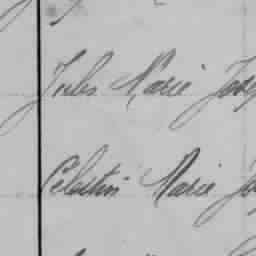 Jules Marie
Célestin Marie